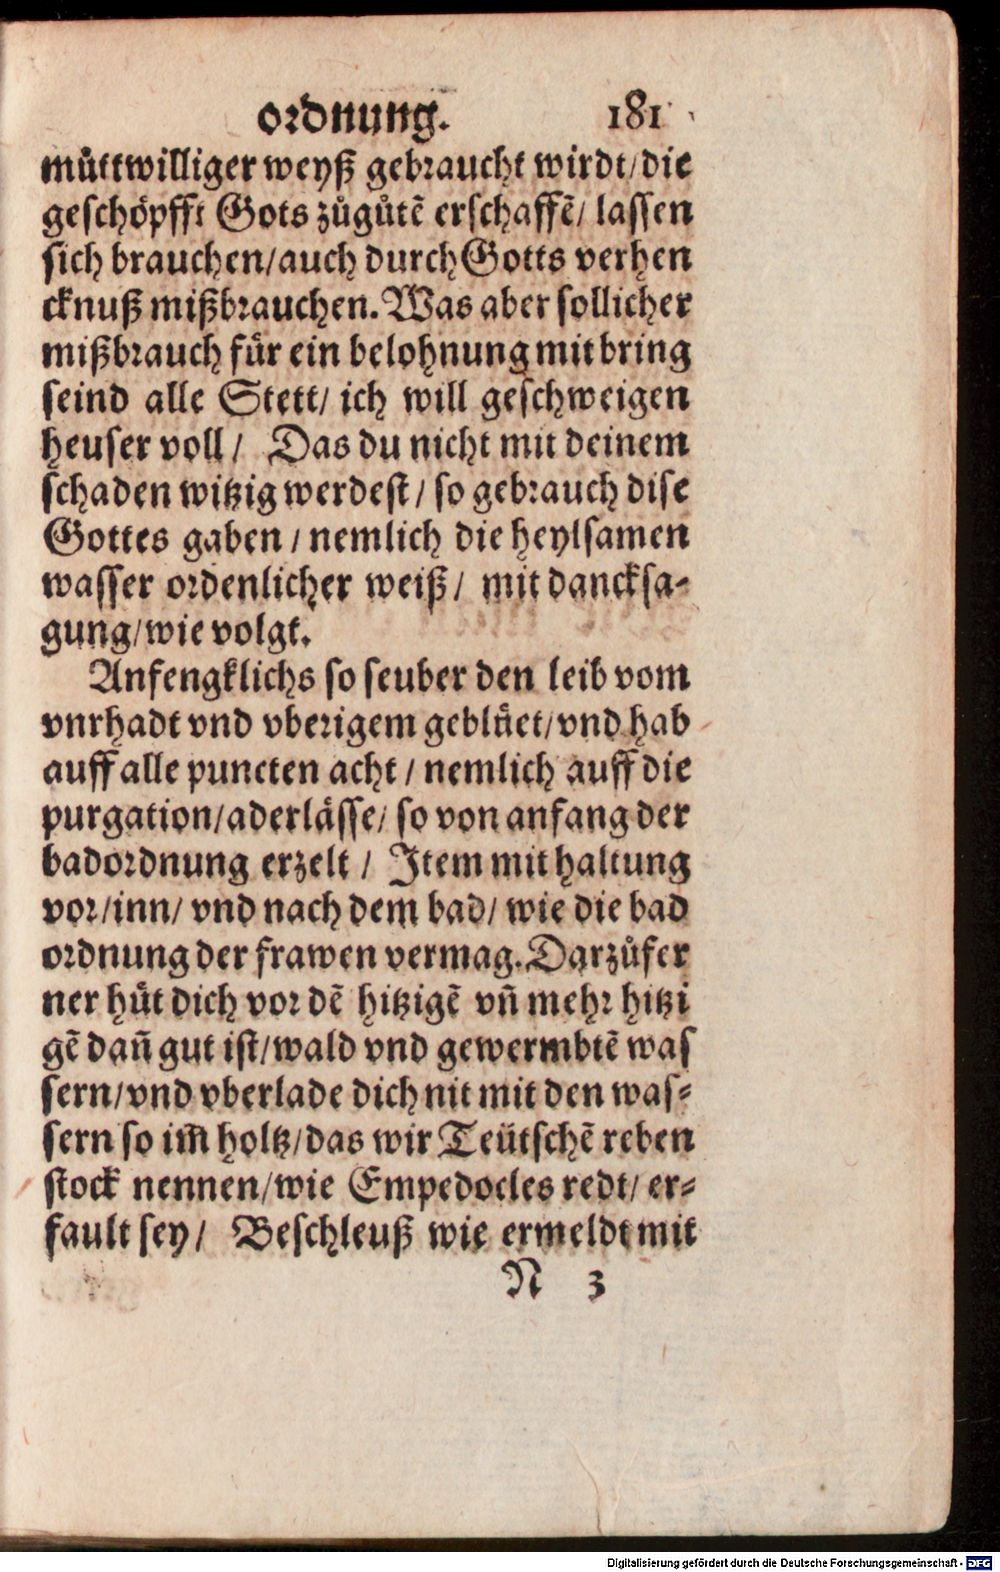 ordnung. 181
můttwilliger weyß gebraucht wirdt/die
geschöpfft Gots zůgůtẽ erschaffẽ/ lassen
sich brauchen/auch durch Gotts verhen
cknuß mißbrauchen. Was aber sollicher
mißbrauch für ein belohnung mit bring
seind alle Stett/ ich will geschweigen
heuser voll/ Das du nicht mit deinem
schaden witzig werdest/ so gebrauch dise
Gottes gaben/ nemlich die heylsamen
wasser ordenlicher weiß/ mit dancksa-
gung/wie volgt.
Anfengklichs so seuber den leib vom
vnrhadt vnd vberigem geblüet/vnd hab
auff alle puncten acht/ nemlich auff die
purgation/aderlässe/ so von anfang der
badordnung erzelt/ Item mit haltung
vor/inn/ vnd nach dem bad/ wie die bad
ordnung der frawen vermag. Darzůfer
ner hüt dich vor dẽ hitzigẽ vñ mehr hitzi
gẽ dañ gut ist/wald vnd gewermbtẽ was
sern/vnd vberlade dich nit mit den was-
sern so im̃ holtz/das wir Teütschẽ reben
stock nennen/wie Empedocles redt/ er-
fault sey/ Beschleuß wie ermeldt mit
N 3
Digitalisierung gefördert durch die Deutsche Forschungsgemeinschaft - DFG